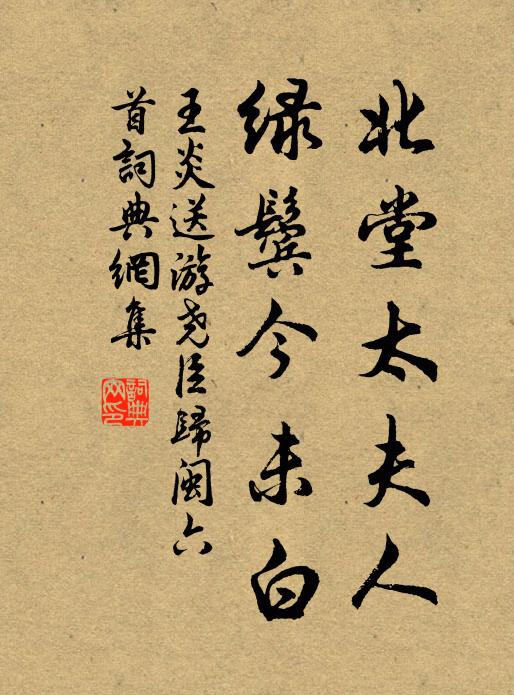 北堂太夫人
绿鬓今未白
王炎送游尧臣歸闽六
首詞典網集